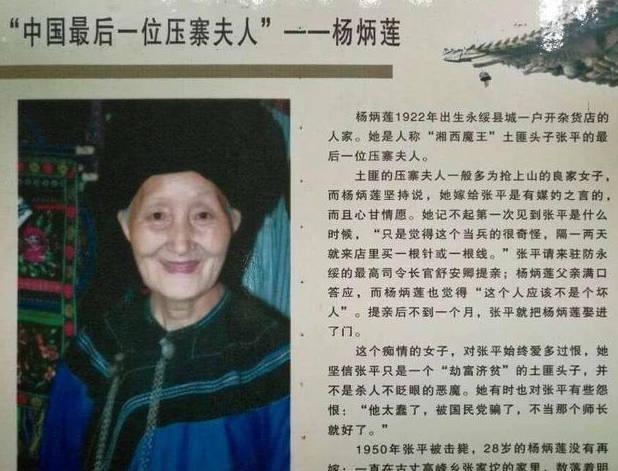 “中国最后一位压寨夫人”——杨炳莲
杨炳莲1922年出生永绥县城一户开杂货店的
人家。她是人称“湘西魔王”土匪头子张平的最
后一位压寨夫人。
土匪的压寨夫人一般多为抢上山的良家女子，
而杨炳莲坚持说，她嫁给张平是有媒妁之言的，
而且心甘情愿。她记不起第一次见到张平是什么
时候，“只是觉得这个当兵的很奇怪，隔一两天
就来店里买一根针或一根线。”张平请来驻防永
绥的最高司令长官舒安卿提亲；杨炳莲父亲满口
答应，而杨炳莲也觉得“这个人应该不是个坏
人”。提亲后不到一个月，张平就把杨炳莲娶进
了门。
这个痴情的女子，对张平始终爱多过恨，她
坚信张平只是一个“劫富济贫”的土匪头子，并
不是杀人不眨眼的恶魔。她有时也对张平有些怨
恨：“他太蠢了，被国民党骗了，不当那个师长
就好了。”
1950年张平被击毙，28岁的杨炳莲没有再
嫁；一直在古丈高峰乡张家坨的家里，散落着明